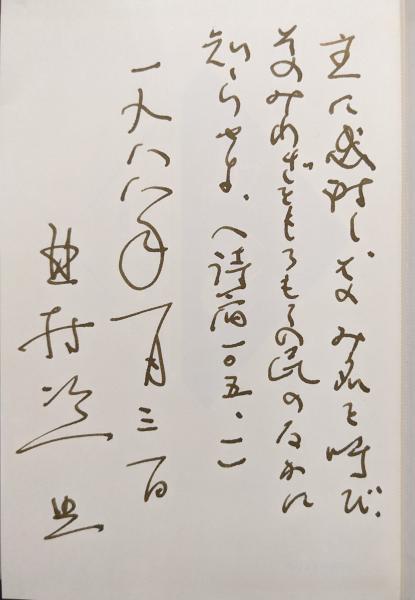 主に感謝し、そのみ名を呼び、
そのみわざをもろもろの民のなかに
知らせよ、(詩篇一〇五、一)
一九八八年一月三一日
村